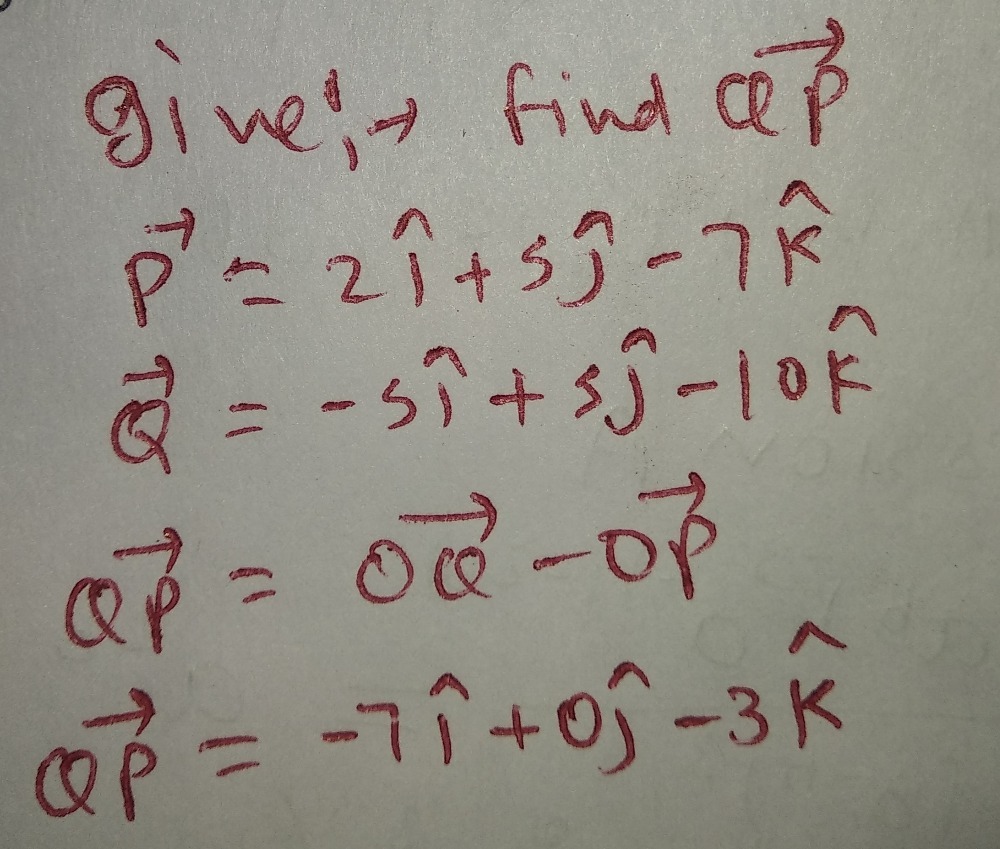 Give:→ find Q⃗P
P⃗ = 2î + 5ĵ - 7k̂
Q⃗ = -5î + 5ĵ - 10k̂
QP⃗ = OQ⃗ - OP⃗
QP⃗ = -7î + 0ĵ - 3k̂